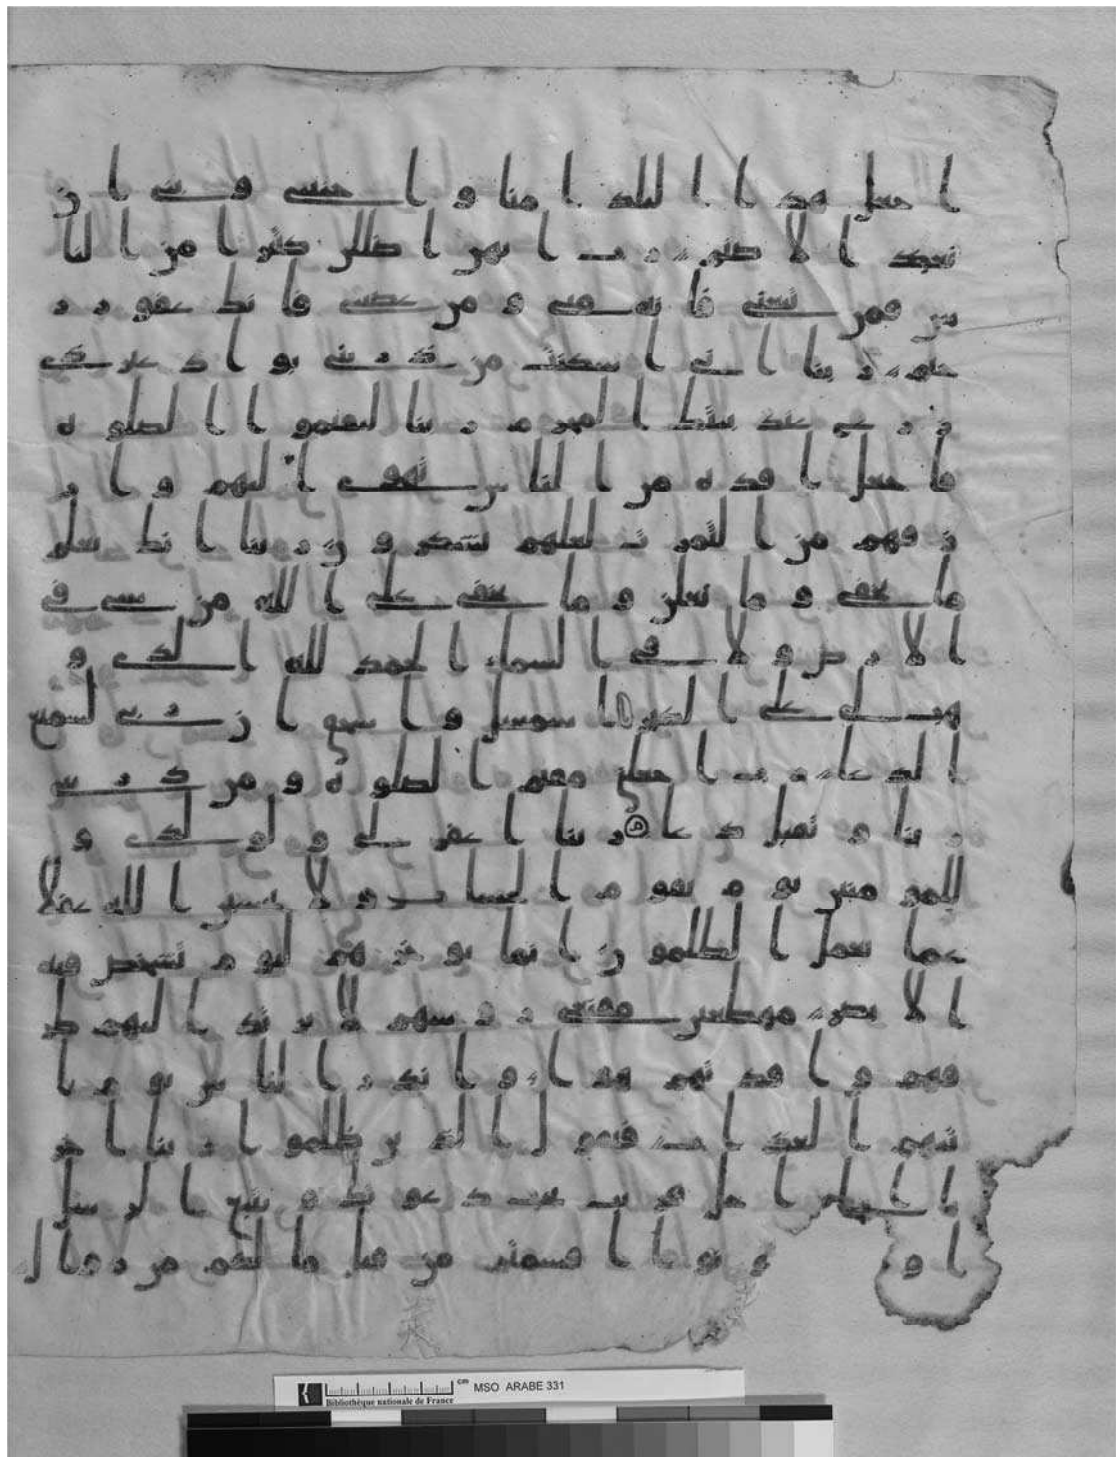 اجعل هذا البلد امنا واجنبني وبني ان
نعبد الاصنم رب انهن اضللن كثيرا من النا
س فمن تبعني فانه مني ومن عصني فانك غفور ر
حيم ربنا اني اسكنت من ذريتي بواد غير ذي
زرع عند بيتك المحرم ربنا ليقيموا الصلوه
فاجعل افده من الناس تهوي اليهم وار
زقهم من الثمرت لعلهم يشكرون ربنا انك تعلم
ما نخفي وما نعلن وما يخفى على الله من شي في
الارض ولا في السما الحمد لله الذي و
هب لي على الكبر اسمعيل واسحق ان ربي لسميع
الدعا رب اجعلني مقيم الصلوه ومن ذريتي
ربنا وتقبل دعا ربنا اغفر لي ولولدي و
للمومنين يوم يقوم الحساب ولا تحسبن الله غفلا
عما يعمل الظلمون انما يوخرهم ليوم تشخص فيه
الابصر مهطعين مقنعي روسهم لا يرتد اليهم طر
فهم وافدتهم هوا وانذر الناس يوم يا
تيهم العذاب فيقول الذين ظلموا ربنا اخر
نا الى اجل قريب نجب دعوتك ونتبع الرسل
او و نوا اقسمتم من قبل ما لكم من زوال
cm MSO ARABE 331
Bibliothèque nationale de France